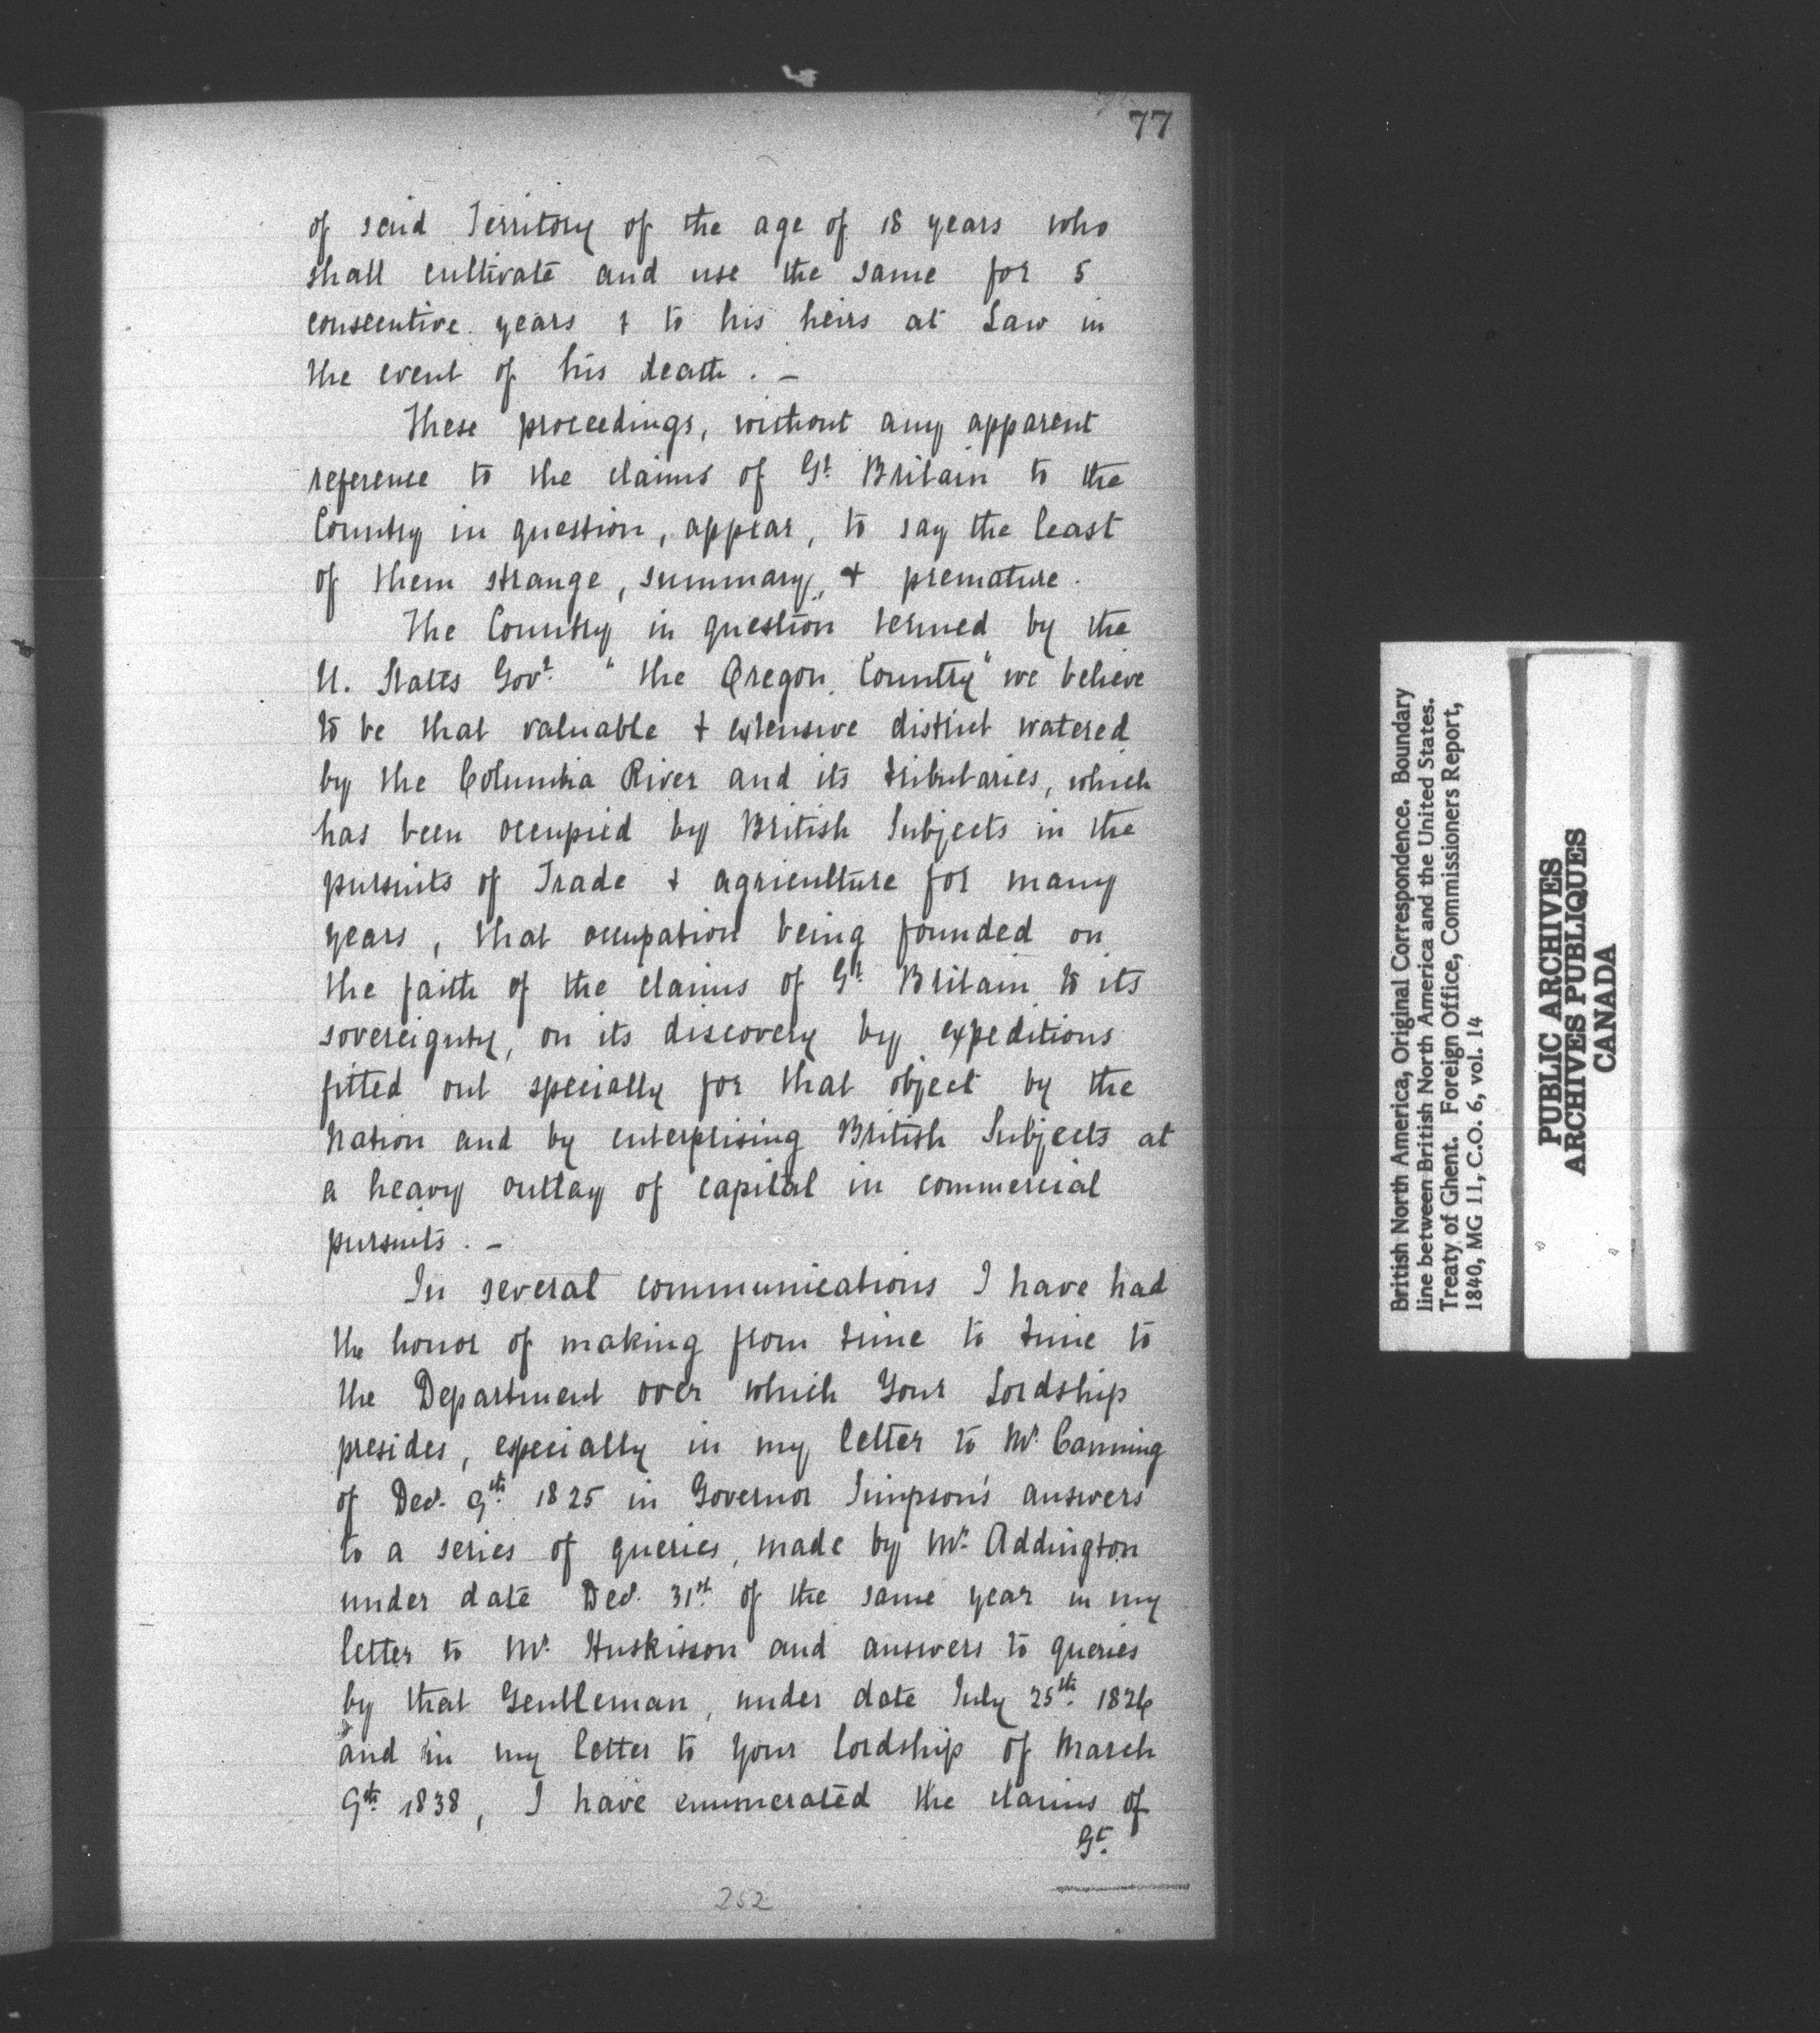 77
of said Territory of the age of 18 years who
shall cultivate and use the same for 5
consecutive years & to his heirs at Law in
the event of his death. -
These proceedings, without any apparent
reference to the claims of Gt. Britain to the
Country in question, appear, to say the least
of them strange, summary, & premature.
The Country in question termed by the
U. States Govt. "the Oregon Country" we believe
to be that valuable & extensive district watered
by the Columbia River and its tributaries, which
has been occupied by British Subjects in the
pursuits of Trade & agriculture for many
years, that occupation being founded on
the faith of the claims of Gt. Britain to its
sovereignty, on its discovery by expeditions
fitted out specially for that object by the
Nation and by enterprising British Subjects at
a heavy outlay of capital in commercial
pursuits. -
In several communications I have had
the honor of making from time to time to
the Department over which Your Lordship
presides, especially in my letter to Mr. Canning
of Decr. 9th. 1825 in Governor Simpson's answers
to a series of queries, made by Mr. Addington
under date Decr. 31st. of the same year in my
letter to Mr. Huskisson and answers to queries
by that Gentleman, under date July 25th. 1826
and in my letter to Your Lordship of March
9th. 1838, I have enumerated the claims of
Gt.
252
British North America, Original Correspondence. Boundary
line between British North America and the United States.
Treaty of Ghent. Foreign Office, Commissioners Report,
1840, MG 11, C.O. 6, vol. 14
PUBLIC ARCHIVES
ARCHIVES PUBLIQUES
CANADA